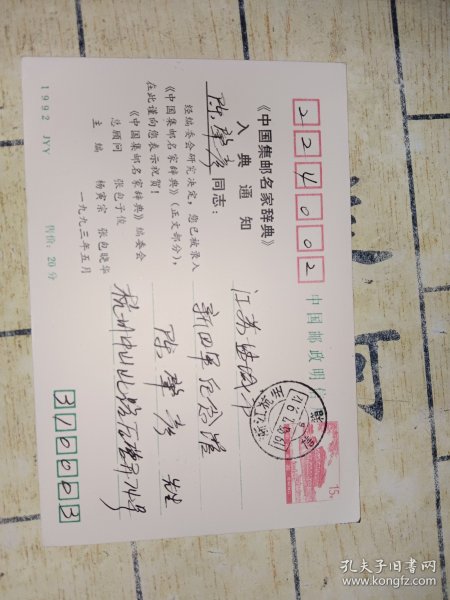 224002
中国邮政明
《中国集邮名家辞典》
入典通知
陈肇彦 同志：
经编委会研究决定，您已被录入
《中国集邮名家辞典》（正文部分），
在此谨向您表示祝贺！
《中国集邮名家辞典》编委会
总顾问 张包子俊
主编 杨寅宗 张包晓华
一九九三年五月
江苏盐城市
新四军纪念馆
陈肇彦 先生
杭州中山北路
310003
15
1992 JYY
售价：20分
孔夫子旧书网
www.kongfz.com